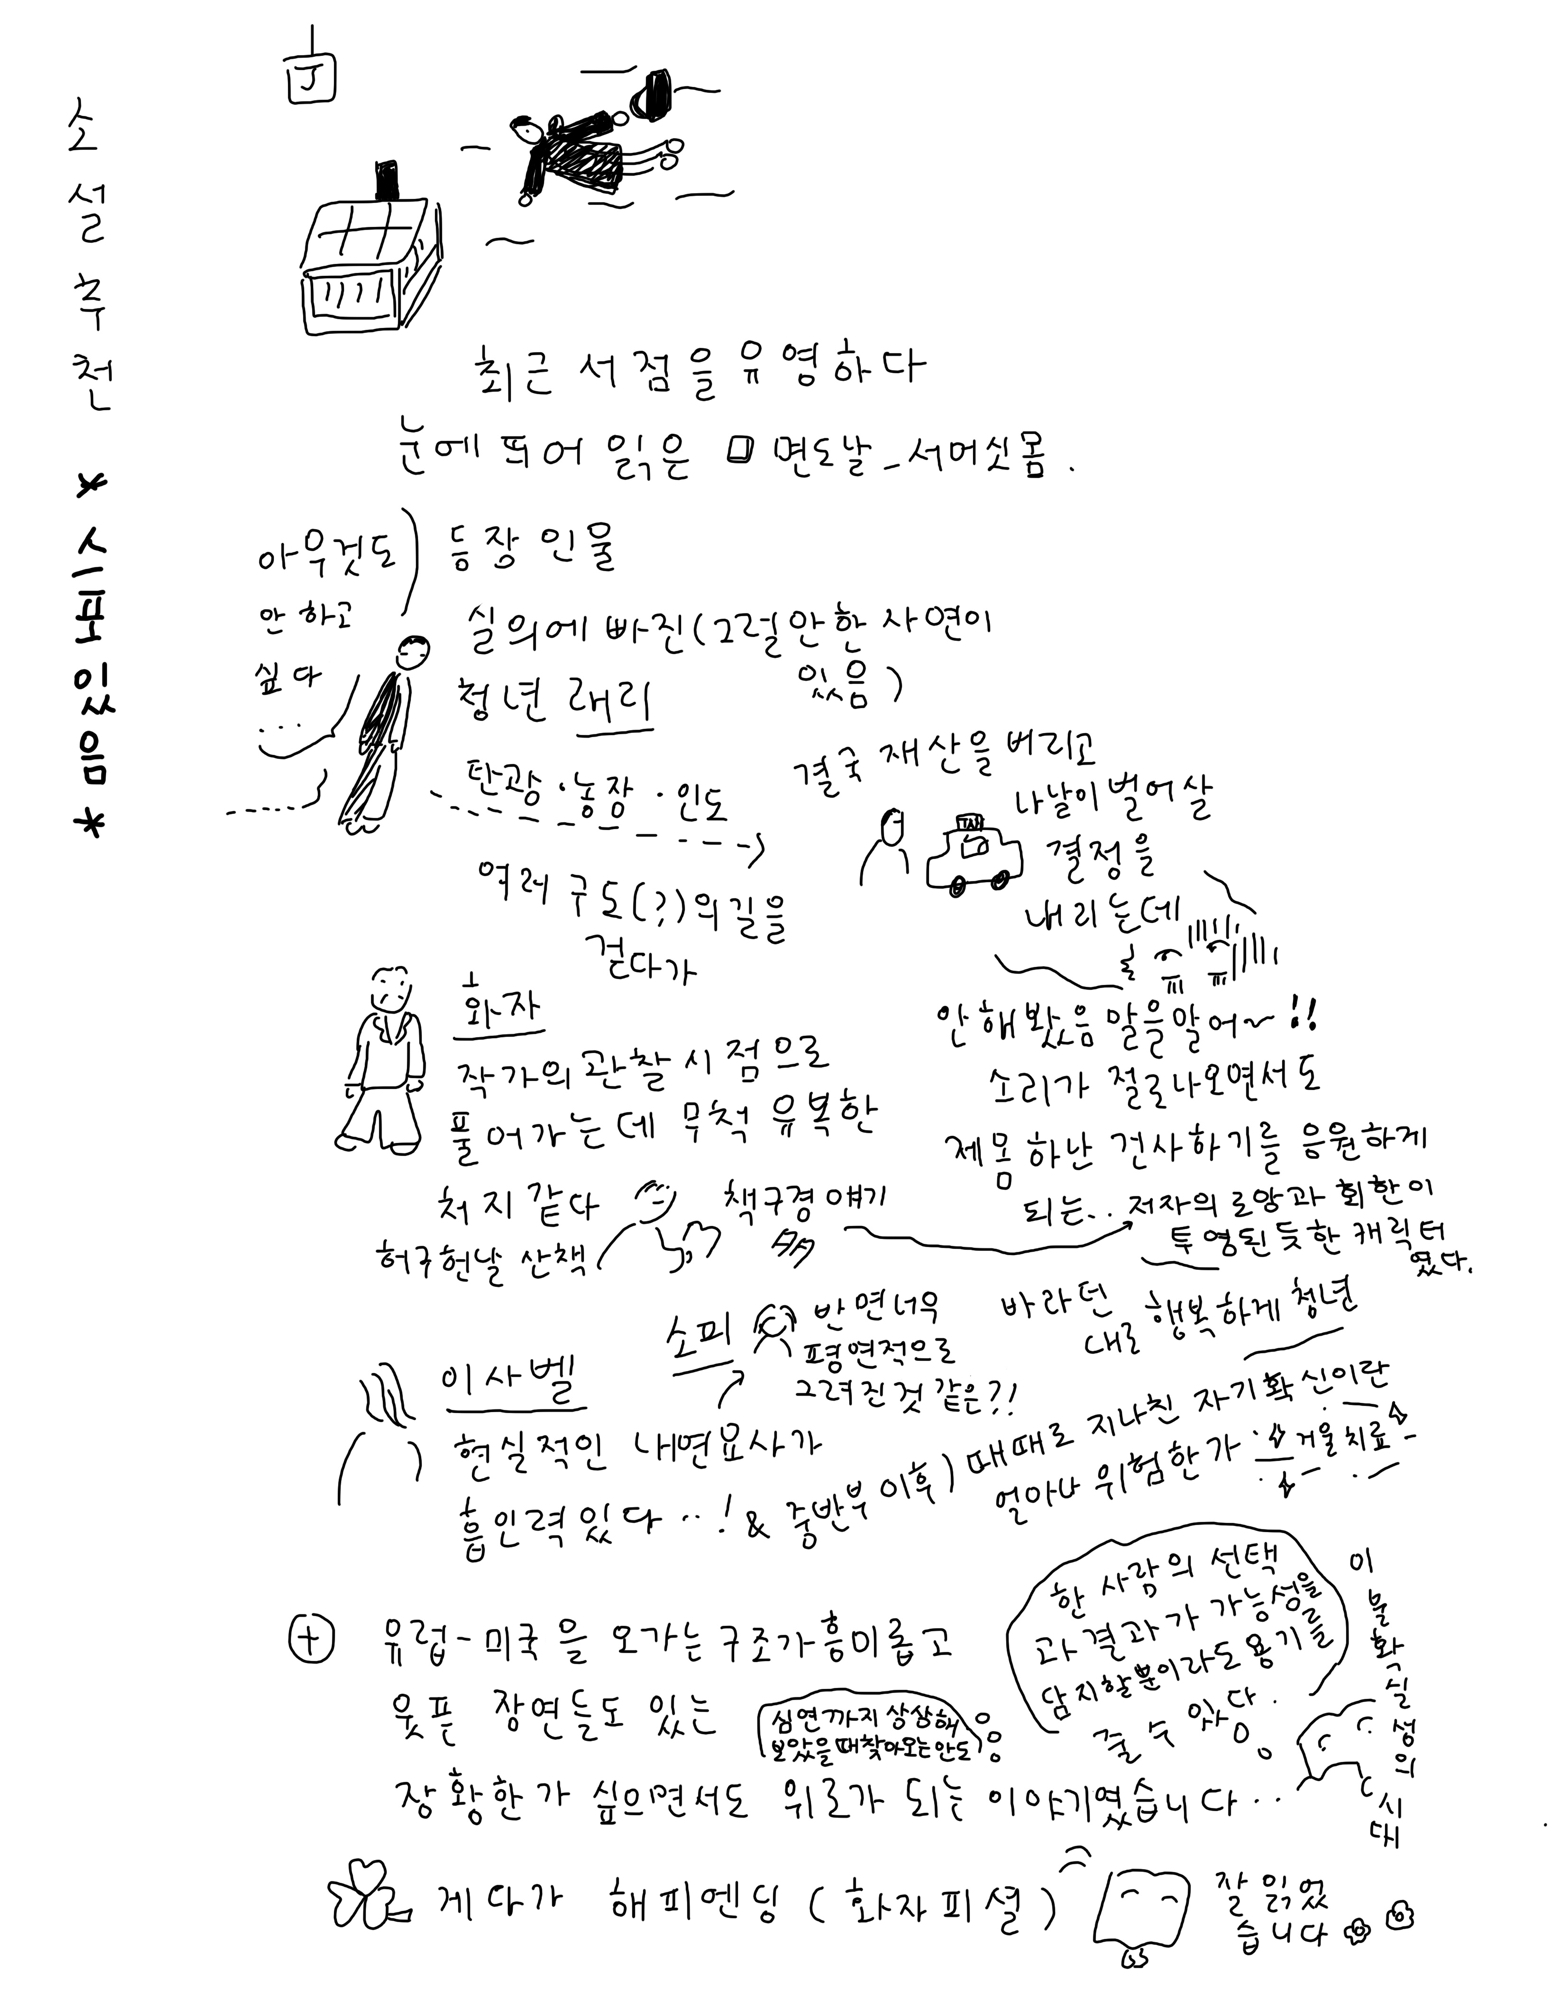 소설추천 *스포있음*
J
최근 서점을 유영하다
눈에 띄어 읽은 면도날_서머싯몸.
아무것도
안 하고
싶다
...
등장 인물
실의에 빠진(그럴만한 사연이
있음)
청년 래리
탄광·농장·인도
여러 구도(?)의 길을
걷다가
결국 재산을 버리고
나날이 벌어 살
결정을
내리는데
TAXI
안 해봤음 말을말어~!!
소리가 절로나오면서도
제몸 하난 건사하기를 응원하게
되는.. 저자의 로망과 회한이
투영된 듯한 캐릭터
였다.
바라던
대로 행복하게 청년
화자
작가의 관찰 시점으로
풀어가는데 무척 유복한
처지 같다
허구헌날 산책
책구경 얘기
多
소피
반면 너무
평면적으로
그려진것 같은?!
이사벨
현실적인 내면묘사가
흡인력있다...! & 중반부 이후) 때때로 지나친 자기확신이란
얼마나 위험한가 거울치료
한 사람의 선택
과 결과가 가능성을
담지할뿐이라도 용기를
줄 수 있다.
이 불확실성의 시대
+ 유럽-미국을 오가는 구조가 흥미롭고
웃픈 장면들도 있는
심연까지 상상해
보았을때찾아오는안도
장황한가 싶으면서도 위로가 되는 이야기였습니다...
게다가 해피엔딩 (화자피셜)
잘 읽었
습니다